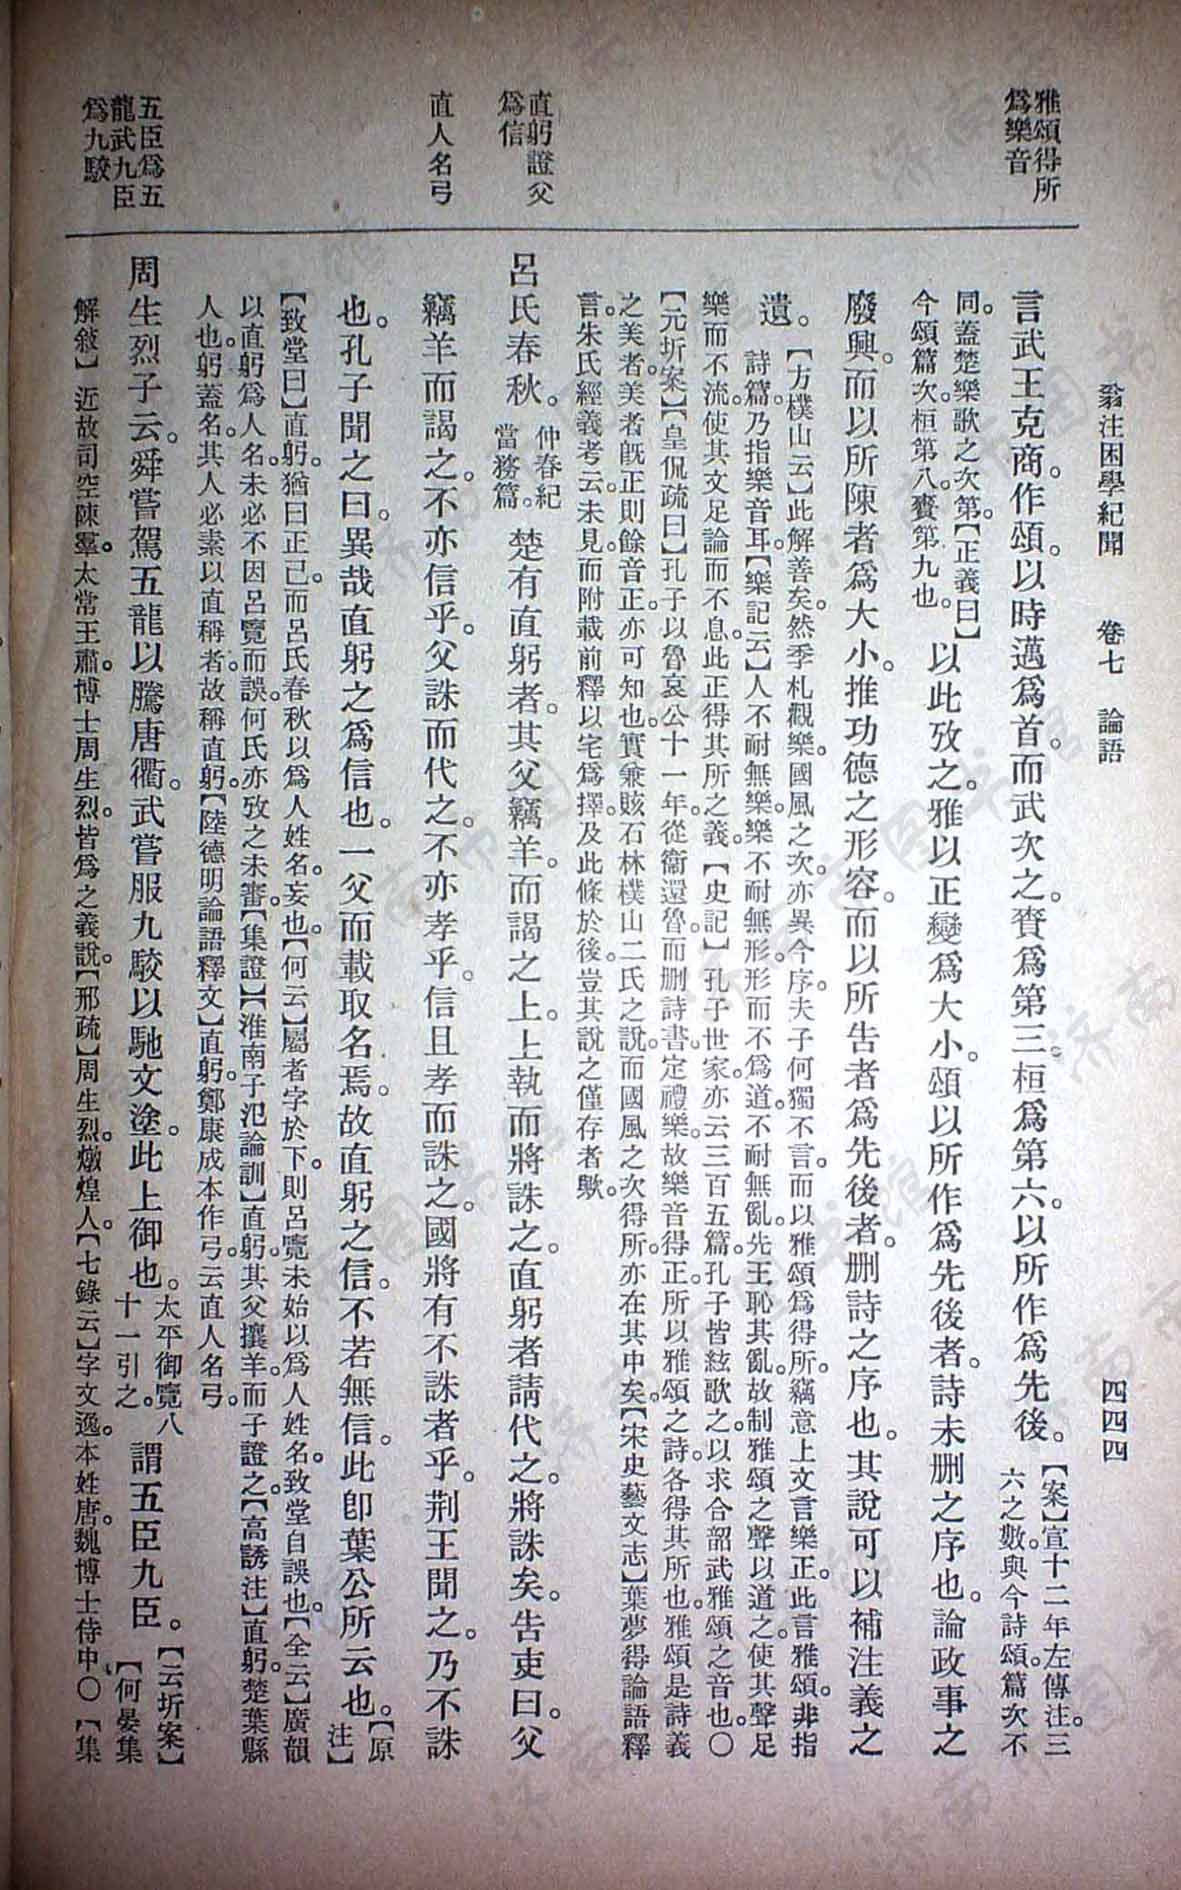 翁注困學紀聞　卷七　論語　四四四
雅頌得所
爲樂音
直躬證父
爲信
直人名弓
五臣爲五
龍武九臣
爲九駮
言武王克商。作頌。以時邁爲首。而武次之。賚爲第三。桓爲第六。以所作爲先後。【案】宣十二年左傳注。三
六之數。與今詩頌。篇次不
同。蓋楚樂歌之次第。【正義曰】
今頌篇次。桓第八。賚第九也。
以此攷之。雅以正變爲大小。頌以所作爲先後者。詩未删之序也。論政事之
廢興。而以所陳者爲大小。推功德之形容。而以所告者爲先後者。删詩之序也。其說可以補注義之
遺。【方樸山云】此解善矣。然季札觀樂。國風之次。亦異今序。夫子何獨不言。而以雅頌爲得所。竊意上文言樂正。此言雅頌。非指
詩篇。乃指樂音耳。【樂記云】人不耐無樂。樂不耐無形。形而不爲道。不耐無亂。先王恥其亂。故制雅頌之聲以道之。使其聲足
樂而不流。使其文足論而不息。此正得其所之義。【史記】孔子世家。亦云三百五篇。孔子皆絃歌之。以求合韶武雅頌之音也。〇
【元圻案】【皇侃疏曰】孔子以魯哀公十一年。從衞還魯。而删詩書。定禮樂。故樂音得正。所以雅頌之詩。各得其所也。雅頌是詩義
之美者。美者旣正。則餘音正。亦可知也。實兼賅石林樸山二氏之說。而國風之次得所。亦在其中矣。【宋史藝文志】葉夢得論語釋
言。朱氏經義考云。未見。而附載前釋以宅爲擇。及此條於後。豈其說之僅存者歟。
呂氏春秋。仲春紀
當務篇。
楚有直躬者。其父竊羊。而謁之上。上執而將誅之。直躬者請代之。將誅矣。告吏曰。父
竊羊而謁之。不亦信乎。父誅而代之。不亦孝乎。信且孝而誅之。國將有不誅者乎。荆王聞之。乃不誅
也。孔子聞之曰。異哉直躬之爲信也。一父而載取名焉。故直躬之信。不若無信。此卽葉公所云也。【原
注】
【致堂曰】直躬。猶曰正己。而呂氏春秋以爲人姓名。妄也。【何云】屬者字於下。則呂覽未始以爲人姓名。致堂自誤也。【全云】廣韻
以直躬爲人名。未必不因呂覽而誤。何氏亦攷之未審。【集證】【淮南子氾論訓】直躬。其父攘羊。而子證之。【高誘注】直躬。楚葉縣
人也。躬蓋名。其人必素以直稱者。故稱直躬。【陸德明論語釋文】直躬。鄭康成本作弓。云直人名弓。
周生烈子云。舜嘗駕五龍以騰唐衢。武嘗服九駮以馳文塗。此上御也。太平御覽八
十一引之。
謂五臣九臣。【云圻案】
【何晏集
解敍】近故司空陳羣。太常王肅。博士周生烈。皆爲之義說。【邢疏】周生烈。燉煌人。【七錄云】字文逸。本姓唐。魏博士侍中〇【集